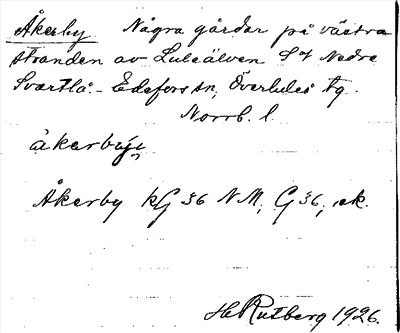 Åkerby Några gårdar på västra
stranden av Luleälven S of Nedre
Svartlå. - Edefors sn, Överluleå tg.
Norrb. l.
åkerbýn
Åkerby kG 36 NM, G 36, ek.
H Rutberg 1926.